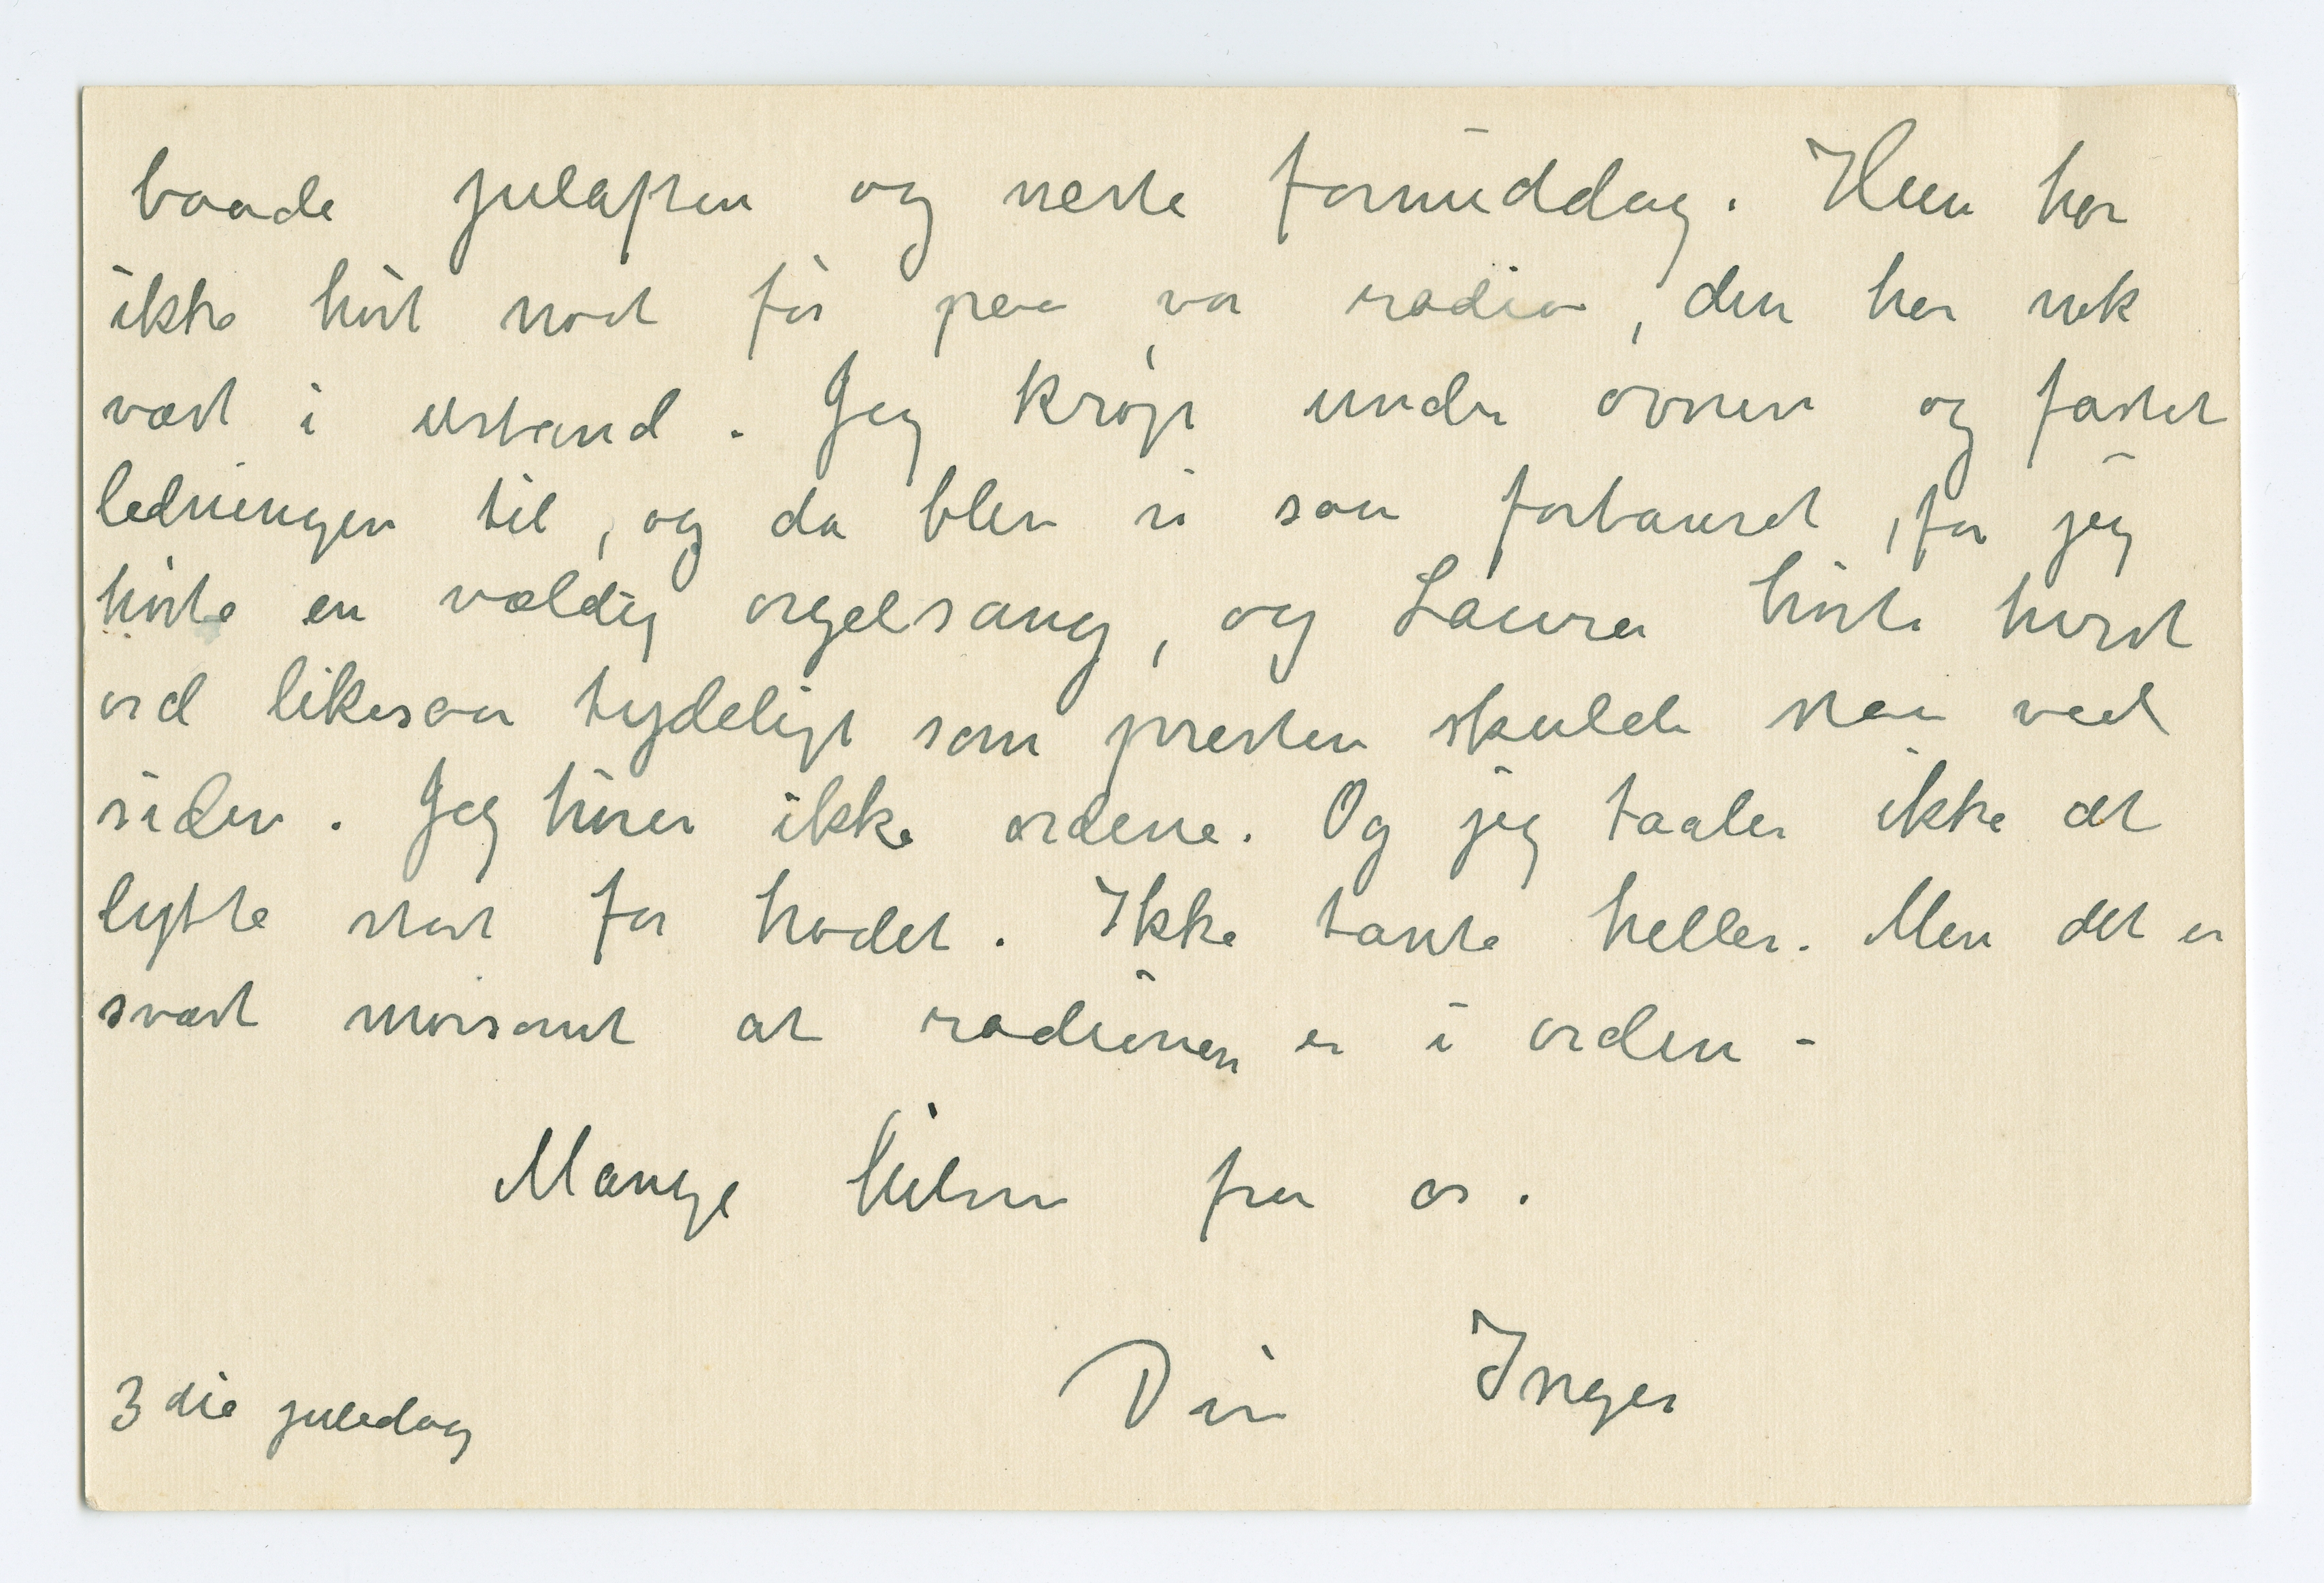 baade julaften og neste formiddag. Hun har
ikke hørt noet før paa vor radio, den har nok
vært i ustand. Jeg krøp under ovnen og fæstet
ledningen til, og da blev vi saa forbauset, for jeg
hørte en vældig orgelsang, og Laura hørte hvert
ord likesaa tydeligt som presten skulde staa ved
siden. Jeg hører ikke ordene. Og jeg taaler ikke at
lytte stort for hodet. Ikke tante heller. Men det er
svært morsomt at radioen er i orden -
Mange hilsn fra os.
Din Inger
3die juledag